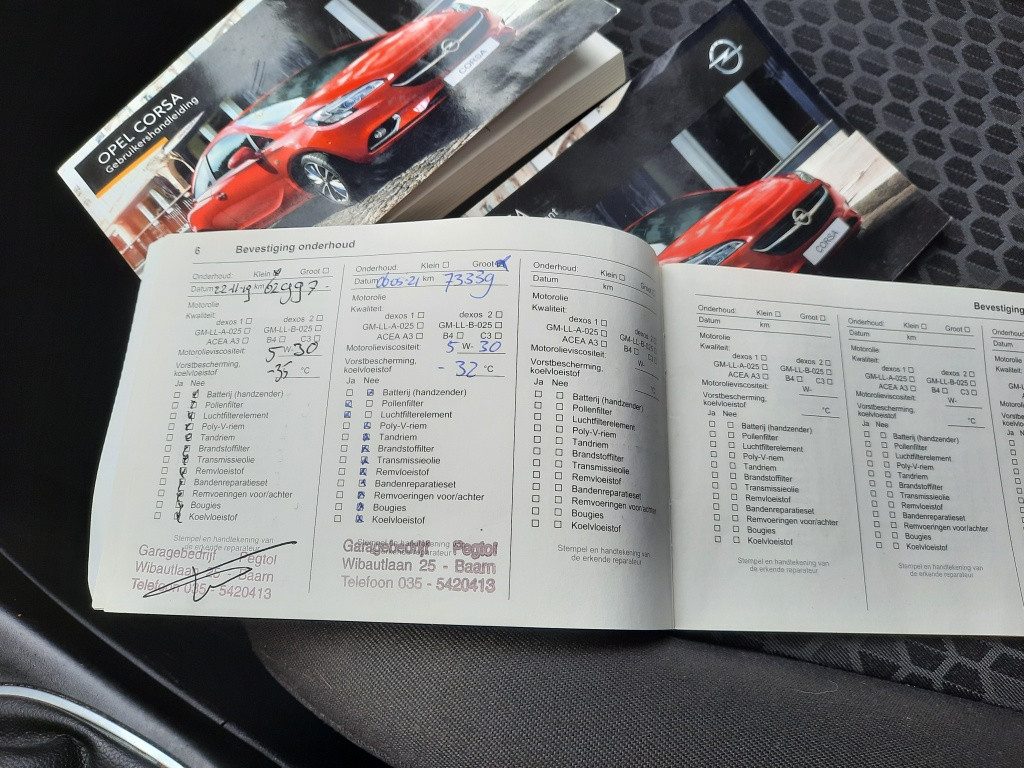 OPEL CORSA
Gebruikershandleiding
CORSA
6 Bevestiging onderhoud
Onderhoud: Klein Groot
Datum 22-11-19 km 62997-
Motorolie
Kwaliteit:
dexos 1 dexos 2
GM-LL-A-025 GM-LL-B-025
ACEA A3 B4 C3
Motorolieviscositeit:
5 W- 30
Vorstbescherming,
koelvloeistof -35 °C
Ja Nee
Batterij (handzender)
Pollenfilter
Luchtfilterelement
Poly-V-riem
Tandriem
Brandstoffilter
Transmissieolie
Remvloeistof
Bandenreparatieset
Remvoeringen voor/achter
Bougies
Koelvloeistof
Stempel en handtekening van
de erkende reparateur
Garagebedrijf Pegtol
Wibautlaan 25 - Baarn
Telefoon 035 - 5420413
Onderhoud: Klein Groot
Datum 06-05-21 km 73339
Motorolie
Kwaliteit:
dexos 1 dexos 2
GM-LL-A-025 GM-LL-B-025
ACEA A3 B4 C3
Motorolieviscositeit:
5 W- 30
Vorstbescherming,
koelvloeistof - 32 °C
Ja Nee
Batterij (handzender)
Pollenfilter
Luchtfilterelement
Poly-V-riem
Tandriem
Brandstoffilter
Transmissieolie
Remvloeistof
Bandenreparatieset
Remvoeringen voor/achter
Bougies
Koelvloeistof
Garagebedrijf Pegtol
Wibautlaan 25 - Baarn
Telefoon 035 - 5420413
Onderhoud: Klein Groot
Datum km
Motorolie
Kwaliteit:
dexos 1 dexos 2
GM-LL-A-025 GM-LL-B-025
ACEA A3 B4 C3
Motorolieviscositeit:
W-
Vorstbescherming,
koelvloeistof °C
Ja Nee
Batterij (handzender)
Pollenfilter
Luchtfilterelement
Poly-V-riem
Tandriem
Brandstoffilter
Transmissieolie
Remvloeistof
Bandenreparatieset
Remvoeringen voor/achter
Bougies
Koelvloeistof
Stempel en handtekening van
de erkende reparateur
Bevestiging
Onderhoud: Klein Groot
Datum km
Motorolie
Kwaliteit:
dexos 1 dexos 2
GM-LL-A-025 GM-LL-B-025
ACEA A3 B4 C3
Motorolieviscositeit:
W-
Vorstbescherming,
koelvloeistof °C
Ja Nee
Batterij (handzender)
Pollenfilter
Luchtfilterelement
Poly-V-riem
Tandriem
Brandstoffilter
Transmissieolie
Remvloeistof
Bandenreparatieset
Remvoeringen voor/achter
Bougies
Koelvloeistof
Stempel en handtekening van
de erkende reparateur
Onderhoud: Klein Groot
Datum km
Motorolie
Kwaliteit:
dexos 1 dexos 2
GM-LL-A-025 GM-LL-B-025
ACEA A3 B4 C3
Motorolieviscositeit:
W-
Vorstbescherming,
koelvloeistof °C
Ja Nee
Batterij (handzender)
Pollenfilter
Luchtfilterelement
Poly-V-riem
Tandriem
Brandstoffilter
Transmissieolie
Remvloeistof
Bandenreparatieset
Remvoeringen voor/achter
Bougies
Koelvloeistof
Stempel en handtekening van
de erkende reparateur
CORSA